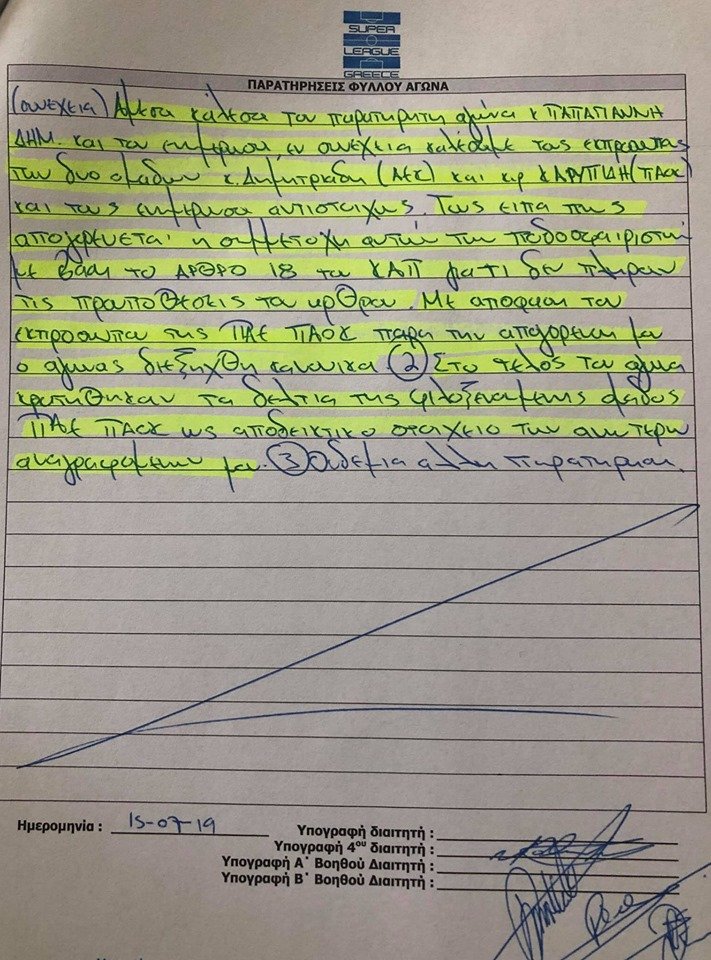 SUPER
LEAGUE
GREECE
ΠΑΡΑΤΗΡΗΣΕΙΣ ΦΥΛΛΟΥ ΑΓΩΝΑ
(συνεχεια) Αμεσα καλεσα τον παρατηρητη αγωνα κ ΠΑΠΑΓΙΑΝΝΗ
ΔΗΜ. και τον ενημερωσα εν συνεχεια καλεσαμε τους εκπροσωπους
των δυο ομαδων κ. Δημητριαδη (ΑΕΚ) και κρ ΚΑΡΥΠΙΔΗ (ΠΑΟΚ)
και τους ενημερωσα αντιστοιχως. Τους ειπα πως
απαγορευεται η συμμετοχη αυτων των ποδοσφαιριστων
με βαση το ΑΡΘΡΟ 18 του ΚΑΠ γιατι δεν πληρουν
τις προυποθεσεις του αρθρου. Με αποφαση του
εκπροσωπου της ΠΑΕ ΠΑΟΚ παρα την απαγορευση μου
ο αγωνας διεξηχθη κανονικα (2) Στο τελος του αγωνα
κρατηθηκαν τα δελτια της φιλοξενουμενης ομαδος
ΠΑΕ ΠΑΟΚ ως αποδεικτικο στοιχειο των ανωτερω
αναγραφομενων μου. (3) Ουδεμια αλλη παρατηρηση.
Ημερομηνία : 15-07-19
Υπογραφή διαιτητή :
Υπογραφή 4ου διαιτητή :
Υπογραφή Α΄ Βοηθού Διαιτητή :
Υπογραφή Β΄ Βοηθού Διαιτητή :